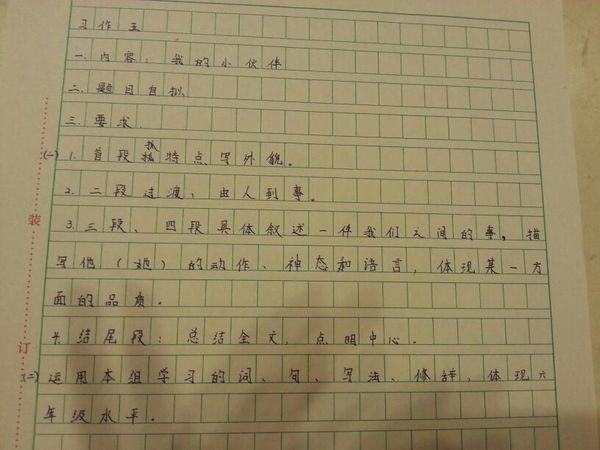 习作五
一.内容：我的小伙伴
二.题目自拟
三.要求.
(一)1.首段抓特点写外貌。
2.二段过渡、由人到事。
3.三段、四段具体叙述一件我们之间的事。描
写他（她）的动作、神态和语言，体现某一方
面的品质.
4.结尾段：总结全文，点明中心.
(二)运用本组学习的词、句、写法、修辞，体现六
年级水平。
装
订